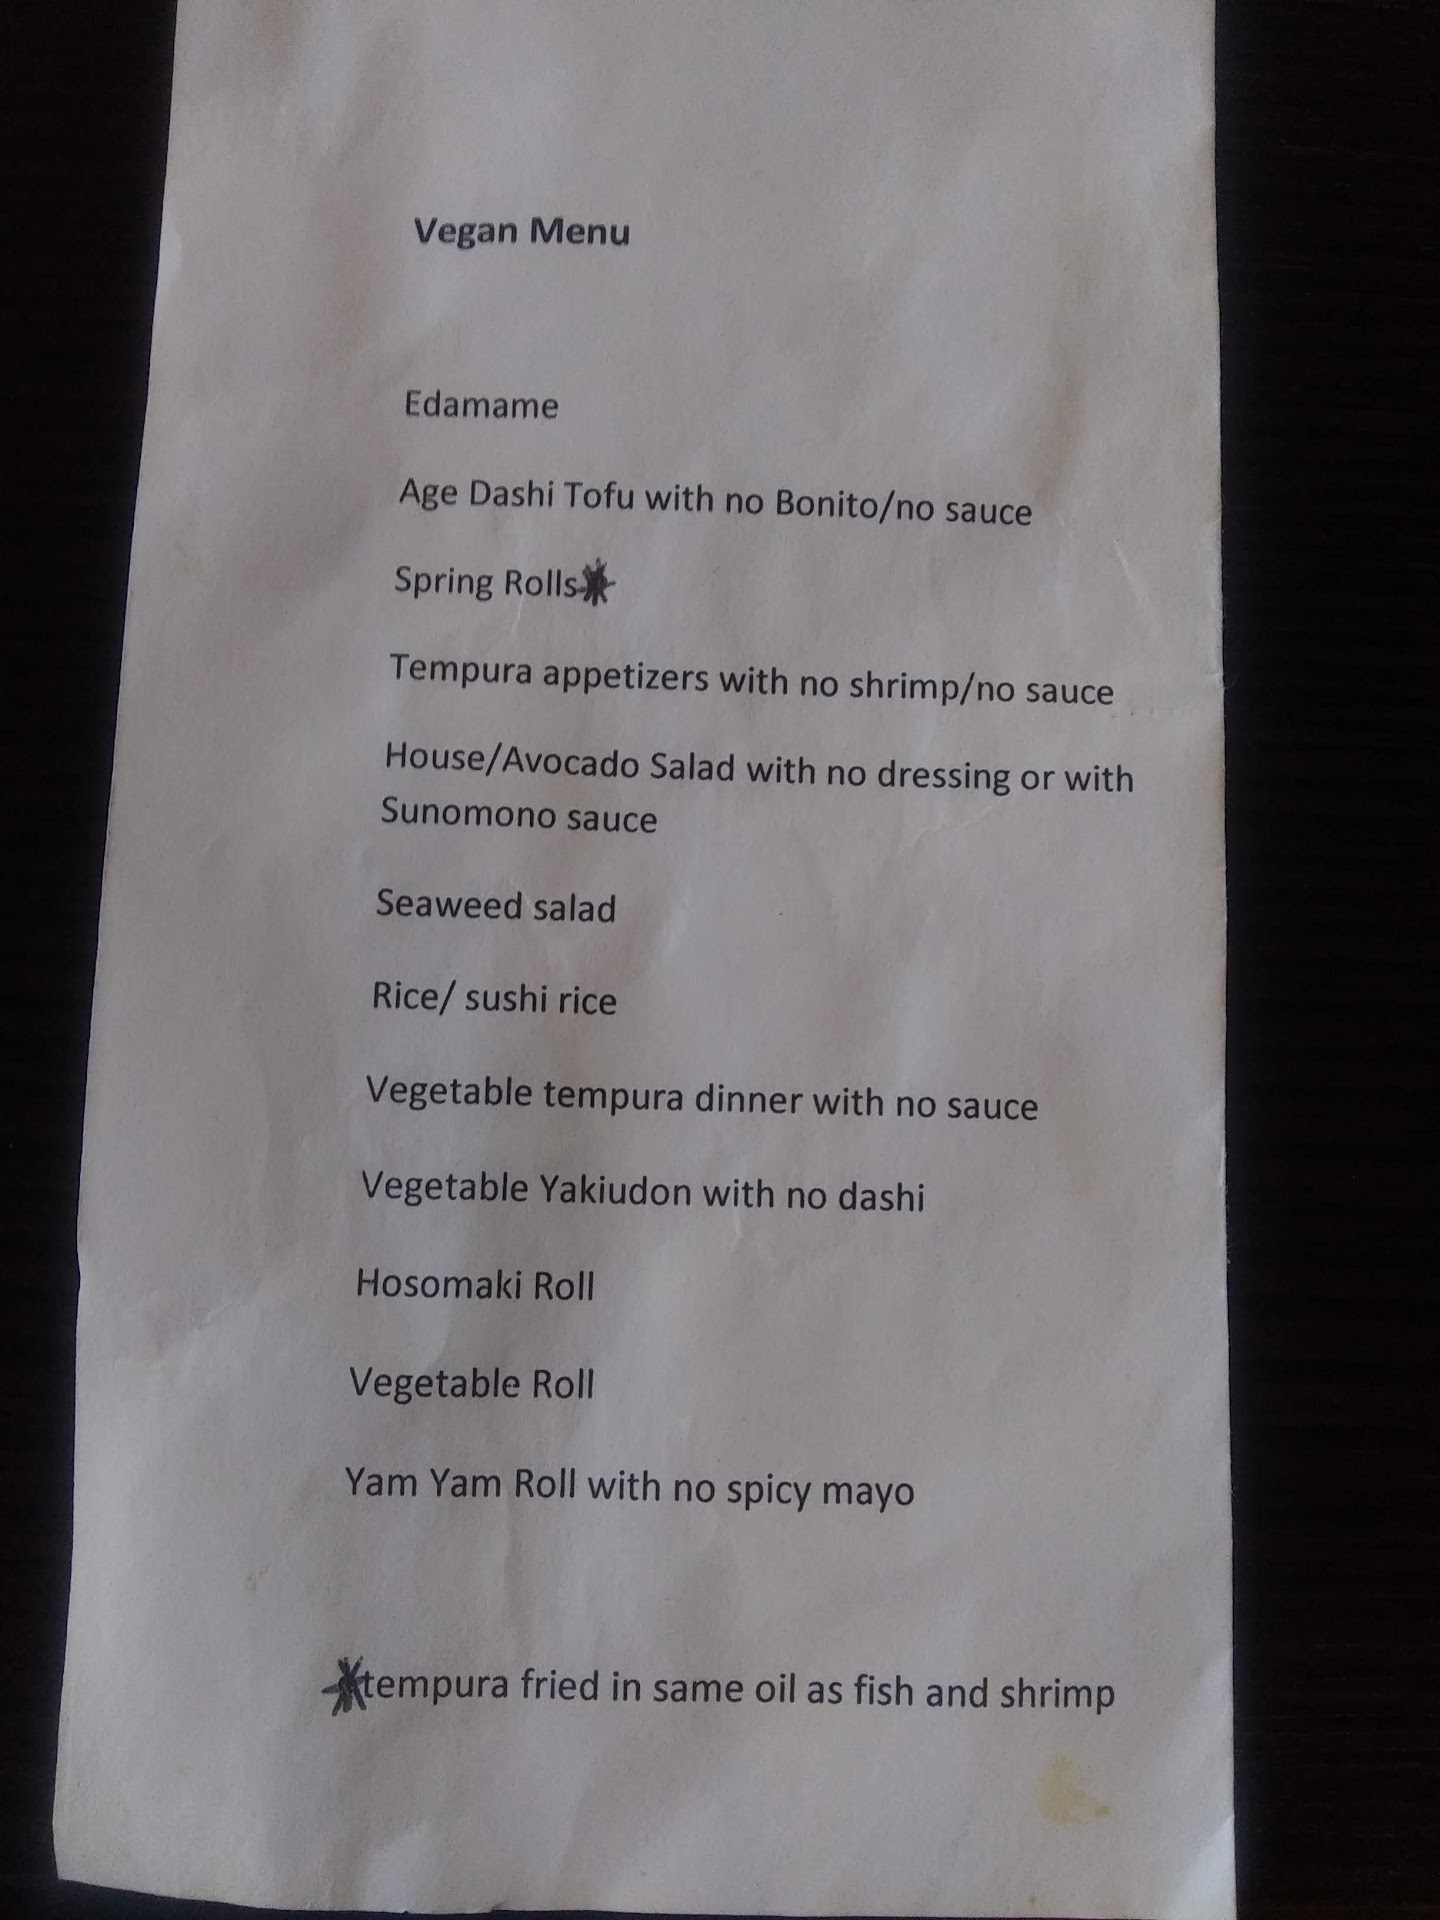 Vegan Menu
Edamame
Age Dashi Tofu with no Bonito/no sauce
Spring Rolls*
Tempura appetizers with no shrimp/no sauce
House/Avocado Salad with no dressing or with
Sunomono sauce
Seaweed salad
Rice/ sushi rice
Vegetable tempura dinner with no sauce
Vegetable Yakiudon with no dashi
Hosomaki Roll
Vegetable Roll
Yam Yam Roll with no spicy mayo
*tempura fried in same oil as fish and shrimp